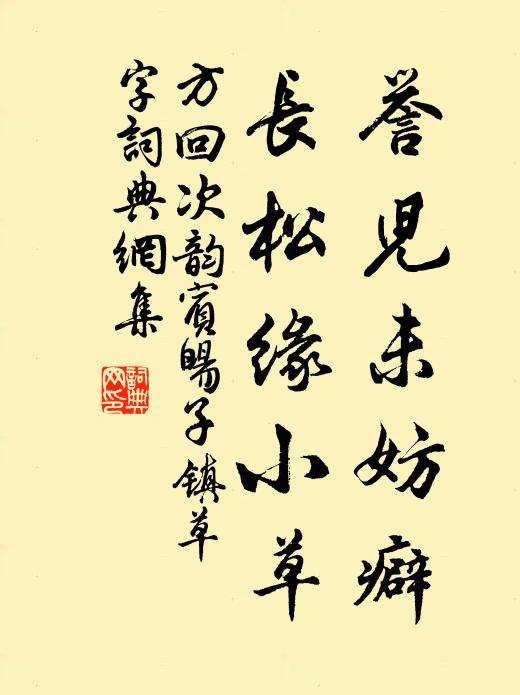 誉児未妨癖
長松緣小草
方回次韵賓暘子鎮草
字詞典網集
詞典網印